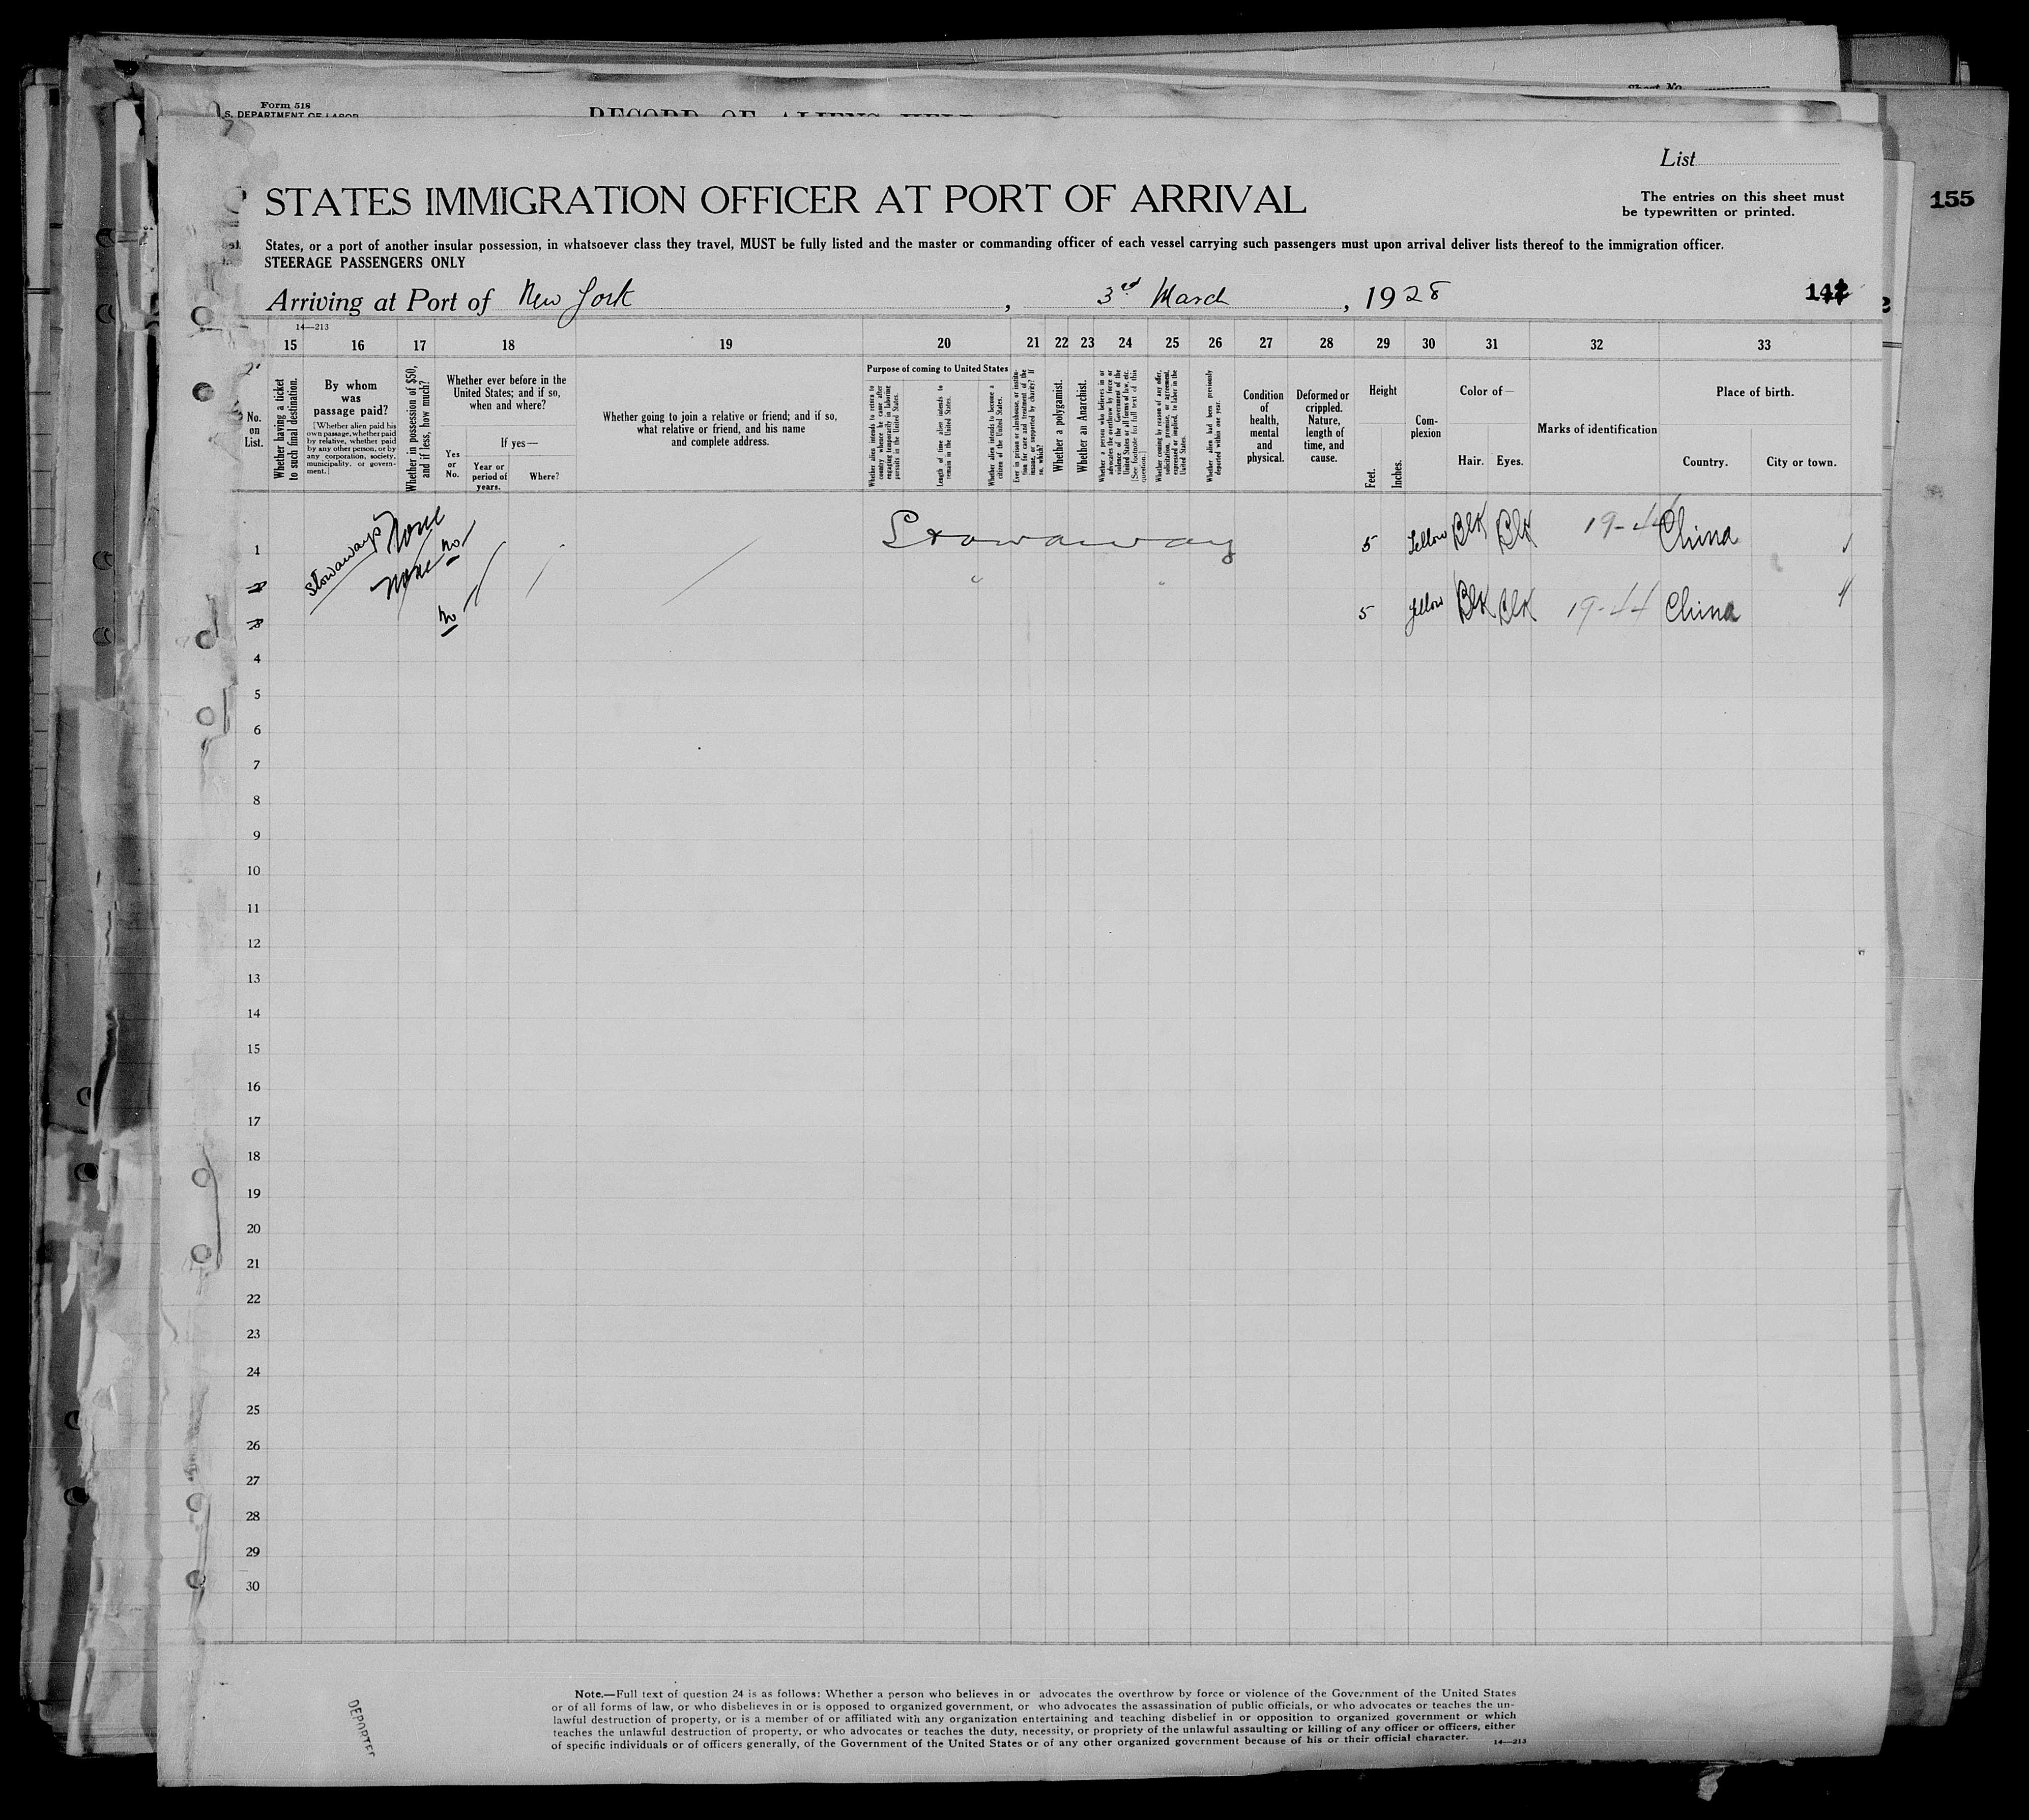 Form 518
S. DEPARTMENT OF LABOR
RECORD OF ALIENS HELD
Sheet No.
List
STATES IMMIGRATION OFFICER AT PORT OF ARRIVAL
The entries on this sheet must
be typewritten or printed.
155
States, or a port of another insular possession, in whatsoever class they travel, MUST be fully listed and the master or commanding officer of each vessel carrying such passengers must upon arrival deliver lists thereof to the immigration officer.
STEERAGE PASSENGERS ONLY
Arriving at Port of New York, 3rd March, 1928
14—213
15 16 17 18 19 20 21 22 23 24 25 26 27 28 29 30 31 32 33
No. on List.
Whether having a ticket to such final destination.
By whom was passage paid?
[Whether alien paid his own passage, whether paid by relative, whether paid by any other person, or by any corporation, society, municipality, or government.]
Whether in possession of $50, and if less, how much?
Whether ever before in the United States; and if so, when and where?
If yes—
Yes or No.
Year or period of years.
Where?
Whether going to join a relative or friend; and if so, what relative or friend, and his name and complete address.
Purpose of coming to United States
Whether alien intends to return to country whence he came after engaging temporarily in laboring pursuits in the United States.
Length of time alien intends to remain in the United States.
Whether alien intends to become a citizen of the United States.
Ever in prison or almshouse, or institution for care and treatment of the insane, or supported by charity? If so, which?
Whether a polygamist.
Whether an Anarchist.
Whether a person who believes in or advocates the overthrow by force or violence of the Government of the United States or all forms of law, etc. [See footnote for full text of this question.]
Whether coming by reason of any offer, solicitation, promise, or agreement, expressed or implied, to labor in the United States.
Whether alien had been previously deported within one year.
Condition of health, mental and physical.
Deformed or crippled. Nature, length of time, and cause.
Height
Feet.
Inches.
Complexion
Color of—
Hair.
Eyes.
Marks of identification
Place of birth.
Country.
City or town.
1 Stowaways None no Stowaway 5 Yellow Blk Blk 19-44 China
none no " " 5 Yellow Blk Blk 19-44 China
4
5
6
7
8
9
10
11
12
13
14
15
16
17
18
19
20
21
22
23
24
25
26
27
28
29
30
Note.—Full text of question 24 is as follows: Whether a person who believes in or advocates the overthrow by force or violence of the Government of the United States
or of all forms of law, or who disbelieves in or is opposed to organized government, or who advocates the assassination of public officials, or who advocates or teaches the un-
lawful destruction of property, or is a member of or affiliated with any organization entertaining and teaching disbelief in or opposition to organized government or which
teaches the unlawful destruction of property, or who advocates or teaches the duty, necessity, or propriety of the unlawful assaulting or killing of any officer or officers, either
of specific individuals or of officers generally, of the Government of the United States or of any other organized government because of his or their official character.
14—213
DEPORTED